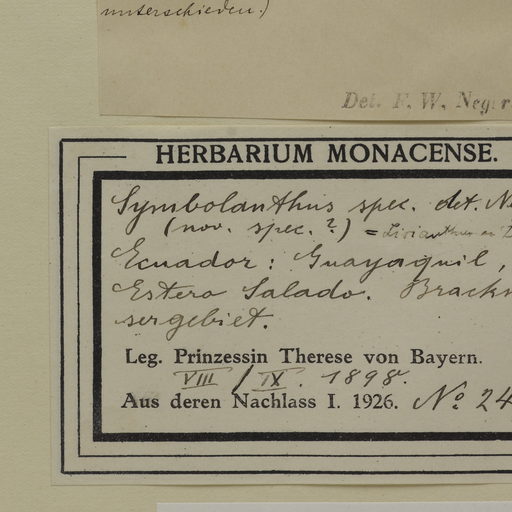 unterschieden.)
Det. F. W. Neger
HERBARIUM MONACENSE.
Symbolanthus spec. det. Ne
(nov. spec.?) = Lisianthus
Ecuador: Guayaquil,
Estero Salado. Brack
sergebiet.
Leg. Prinzessin Therese von Bayern.
VIII/IX. 1898.
Aus deren Nachlass I. 1926. No 24